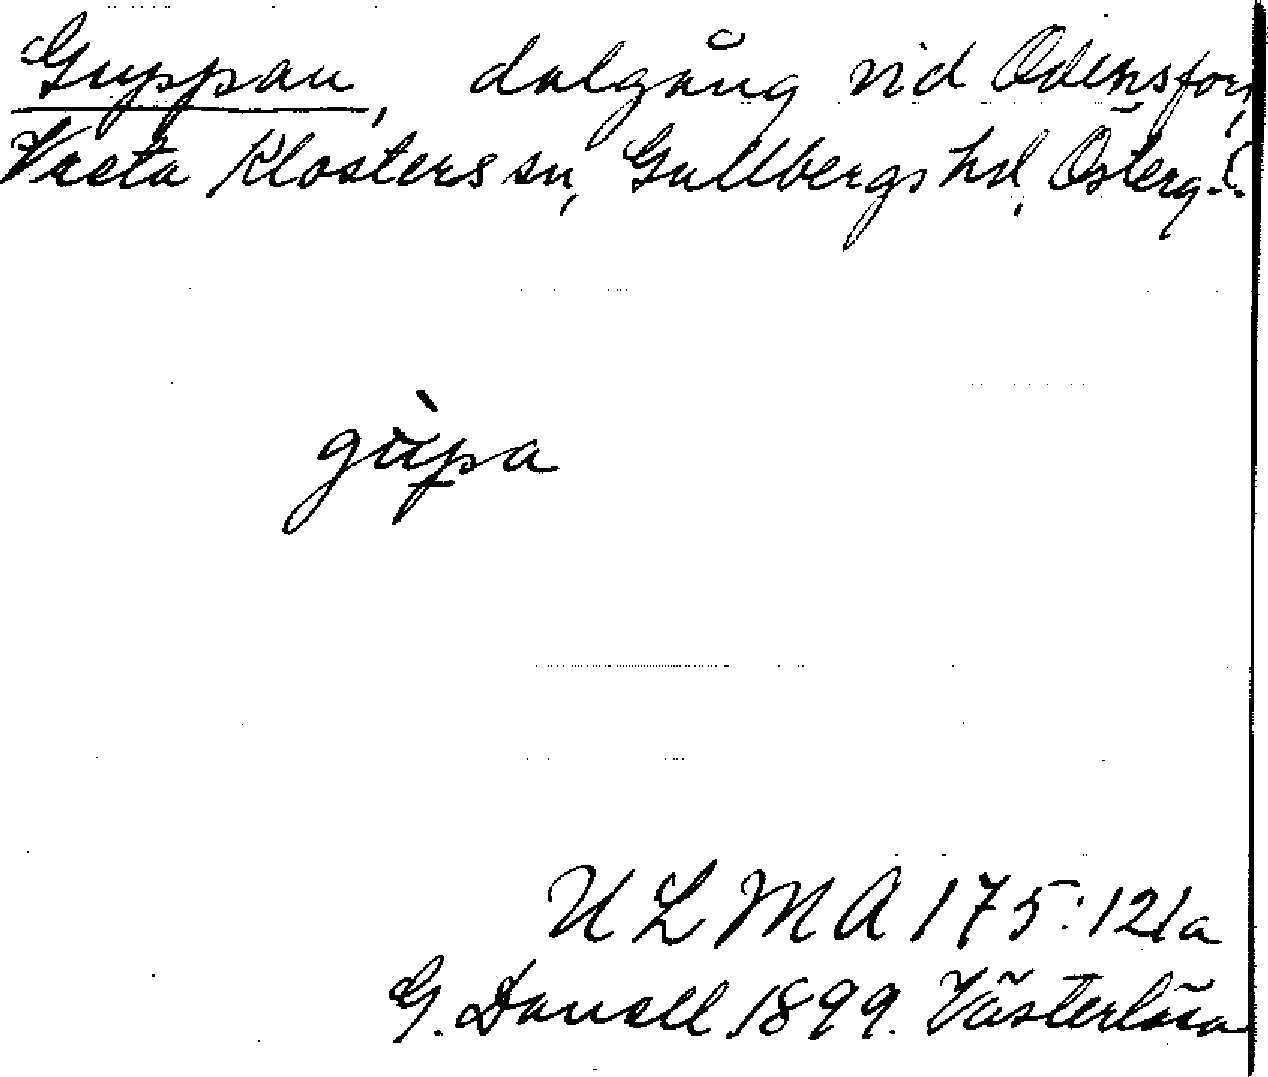 Guppan, dalgång vid Odensfors,
Vreta Klosters sn, Gullbergs hd, Österg.
gùpa
ULMA 175:121a
G. Danell 1899. Västerlösa